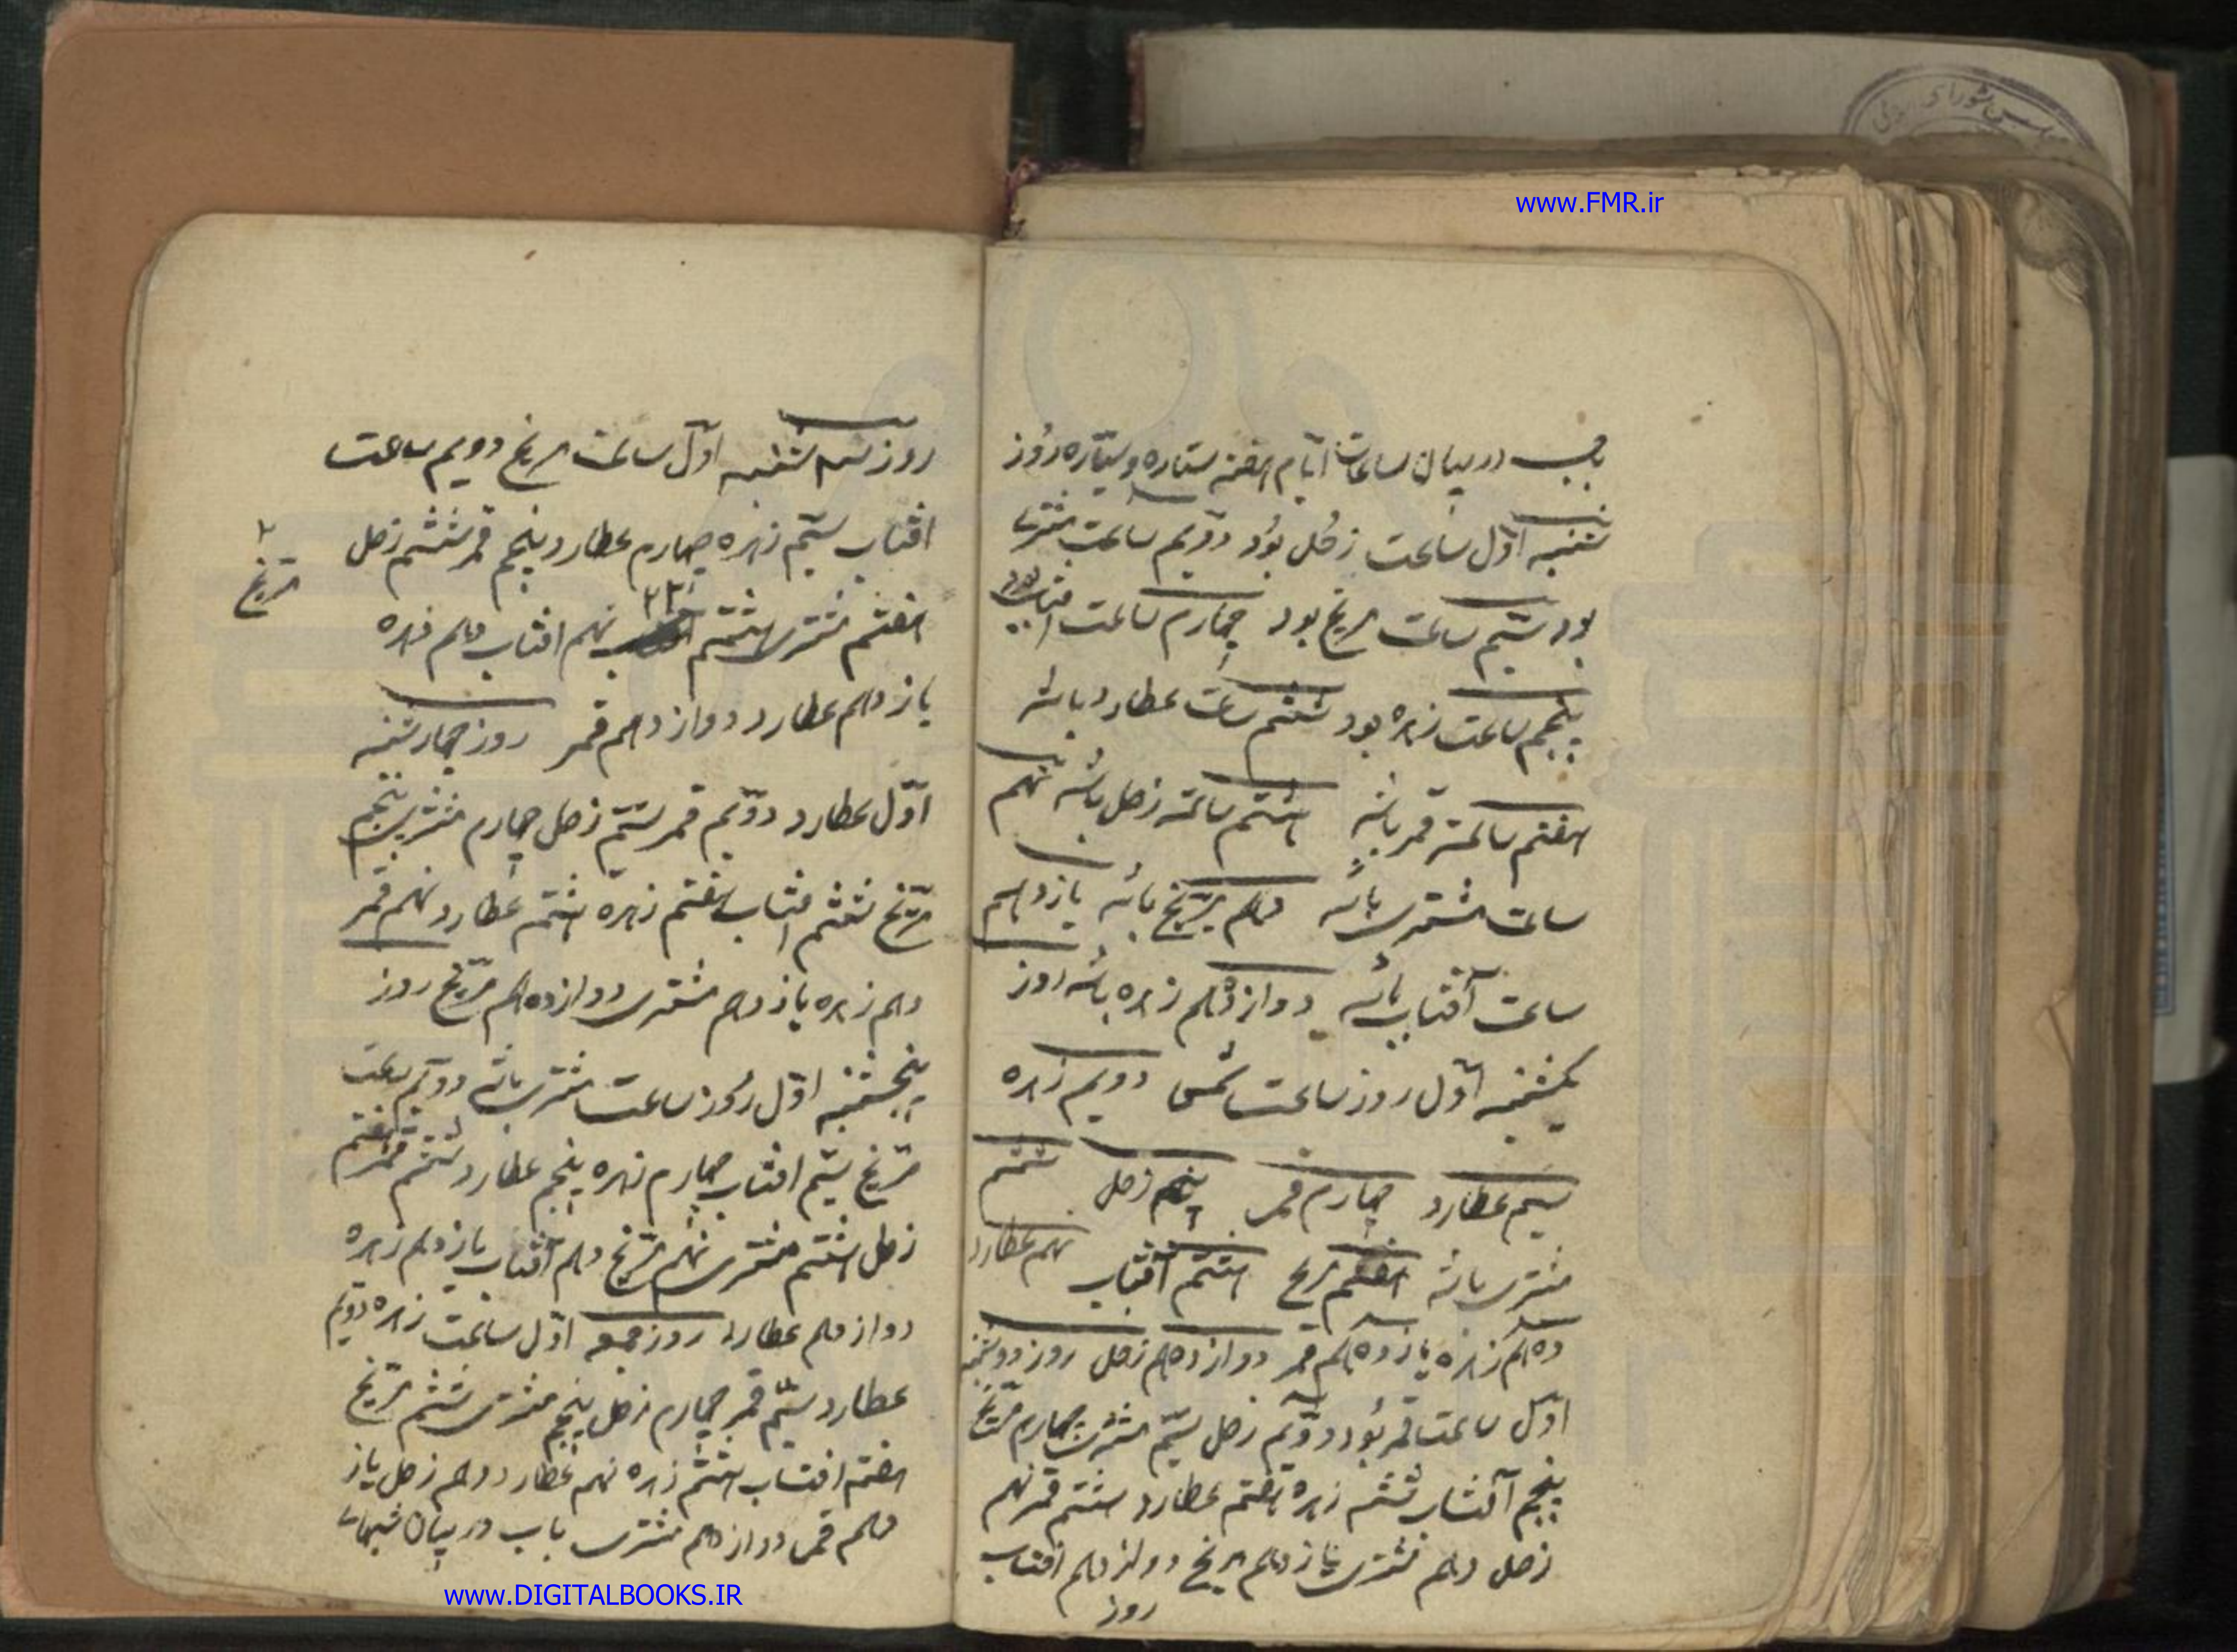 www.FMR.ir
باب در بیان ساعات ایام هفته ستاره و سیّاره روز
شنبه اوّل ساعت زحل بود دوّیم ساعت مشتری
بود سیّم ساعت مریخ بود چهارم ساعت افتاب بود
پنجم ساعت زهره بود ششم ساعت عطارد باشد
هفتم ساعت قمر باشد هشتم ساعت زحل باشد نهم
ساعت مشتری باشد دهم مریخ باشد یازدهم
ساعت آفتاب باشد دوازدهم زهره باشد روز
یکشنبه اوّل روز ساعت شمس دویم زهره
سیم عطارد چهارم قمر پنجم زحل ششم
مشتری باشد هفتم مریخ هشتم آفتاب نهم عطارد
دهم زهره یازدهم قمر دوازدهم زحل روز دوشنبه
اوّل ساعت قمر بود دوّیم زحل سیّم مشتری چهارم مریخ
پنجم آفتاب ششم زهره هفتم عطارد هشتم قمر نهم
زحل دهم مشتری یازدهم مریخ دوازدهم افتاب
روز
روز سه شنبه اوّل ساعت مریخ دویم ساعت
افتاب سیّم زهره چهارم عطارد پنجم قمر ششم زحل
هفتم مشتری هشتم نهم افتاب دهم زهره
مریخ
یازدهم عطارد دوازدهم قمر روز چهارشنبه
اوّل عطارد دوّیم قمر سیّم زحل چهارم مشتری پنجم
مریخ ششم افتاب هفتم زهره هشتم عطارد نهم قمر
دهم زهره یازدهم مشتری دوازدهم مریخ روز
پنجشنبه اوّل روز ساعت مشتری باشد دوّیم ساعت
مریخ سیّم افتاب چهارم زهره پنجم عطارد ششم قمر هفتم
زحل هشتم مشتری نهم مریخ دهم آفتاب یازدهم زهره
دوازدهم عطارد روز جمعه اوّل ساعت زهره دویّم
عطارد سیّم قمر چهارم زحل پنجم مشتری ششم مریخ
هفتم افتاب هشتم زهره نهم عطارد دهم زحل یاز
دهم قمر دوازدهم مشتری باب در بیان شبهای
www.DIGITALBOOKS.IR